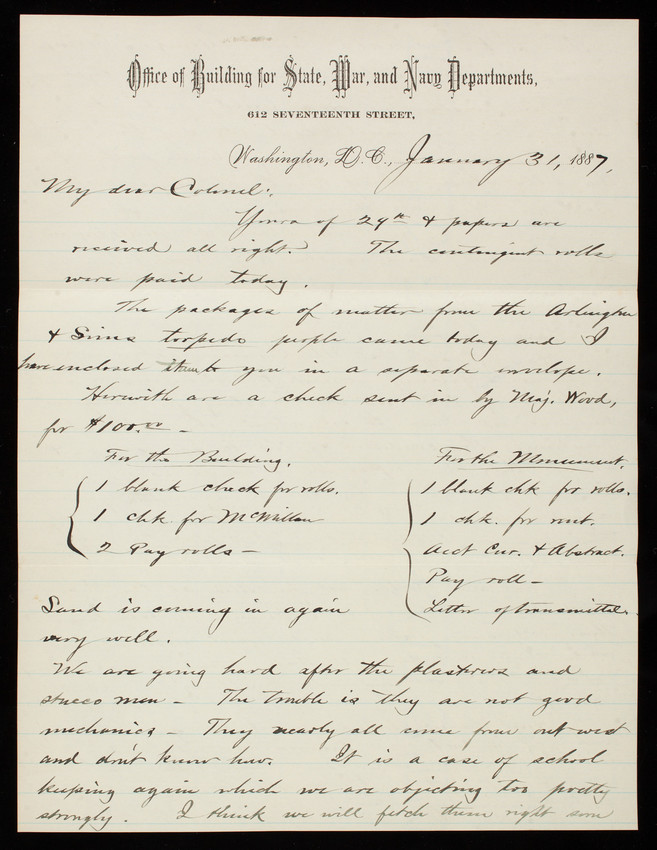 Office of Building for State, War, and Navy Departments,
612 SEVENTEENTH STREET,
Washington, D.C., January 31, 1887,
My dear Colonel:
Yours of 29th & papers are
received all right. The contingent rolls
were paid today.
The packages of matter from the Arlington
& Sims torpedo people came today and I
have enclosed to you in a separate envelope.
Herewith are a check sent in by Maj. Wood,
for $100.00 –
For the Building.
{ 1 blank check for rolls.
1 chk. for McMillan
2 Pay rolls –
For the Monument.
{ 1 blank chk for rolls.
1 chk. for rent.
Acct Cur. & Abstract.
Pay roll –
Letter of transmittal.
Sand is coming in again
very well.
We are going hard after the plasterers and
stucco men – The trouble is they are not good
mechanics – They nearly all come from out west
and don't know how. It is a case of school
keeping again which we are objecting to pretty
strongly. I think we will fetch them right soon